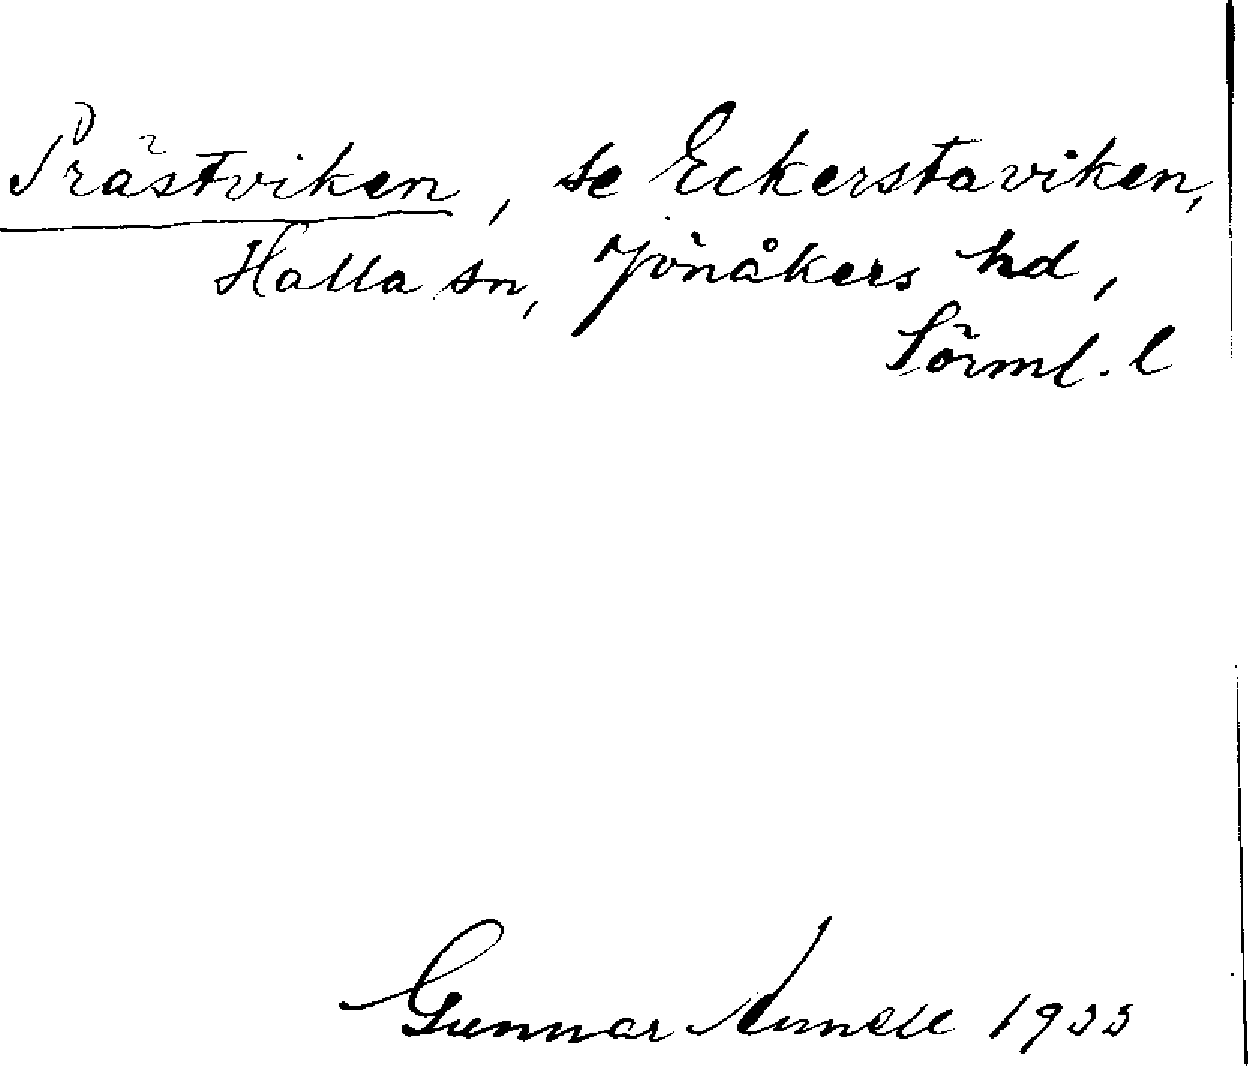 Prästviken, se Eckerstaviken,
Halla sn, Jönåkers hd,
Sörml. l
Gunnar 1933